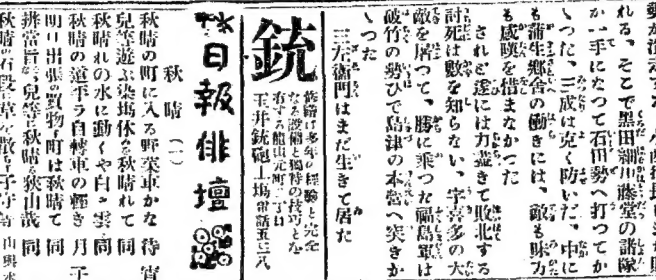 れる、そこで黒田細川藤堂の諸隊
か一手になつて石田勢へ打つてか
ゝつた、三成は克く防いだ、中に
も蒲生郷舎の働きには、敵も味方
も感嘆を惜まなかつた
されど遂には力盡きて敗北する
討死は數を知らない、宇喜多の大
敵を屠つて、勝に乘つた福島軍は
破竹の勢ひで島津の本營へ突きか
ゝつた
三左衞門はまだ生きて居た
銃
修繕は多年の經驗と完全
なる設備と獨特の技巧とを
有する龍山元町二丁目
玉井銃砲工場電話五三八
日報俳壇
秋晴(一)
秋晴の町に入る野菜車かな 待宵
兒等遊ぶ染塲休み秋晴れて 同
秋晴れの水に動くや白き雲 同
秋晴の道平ラ自轉車の輕き 月子
明日出張の買物す町は秋晴て 同
辨當旨き兒等よ秋晴る狭山哉 同
秋晴の石段